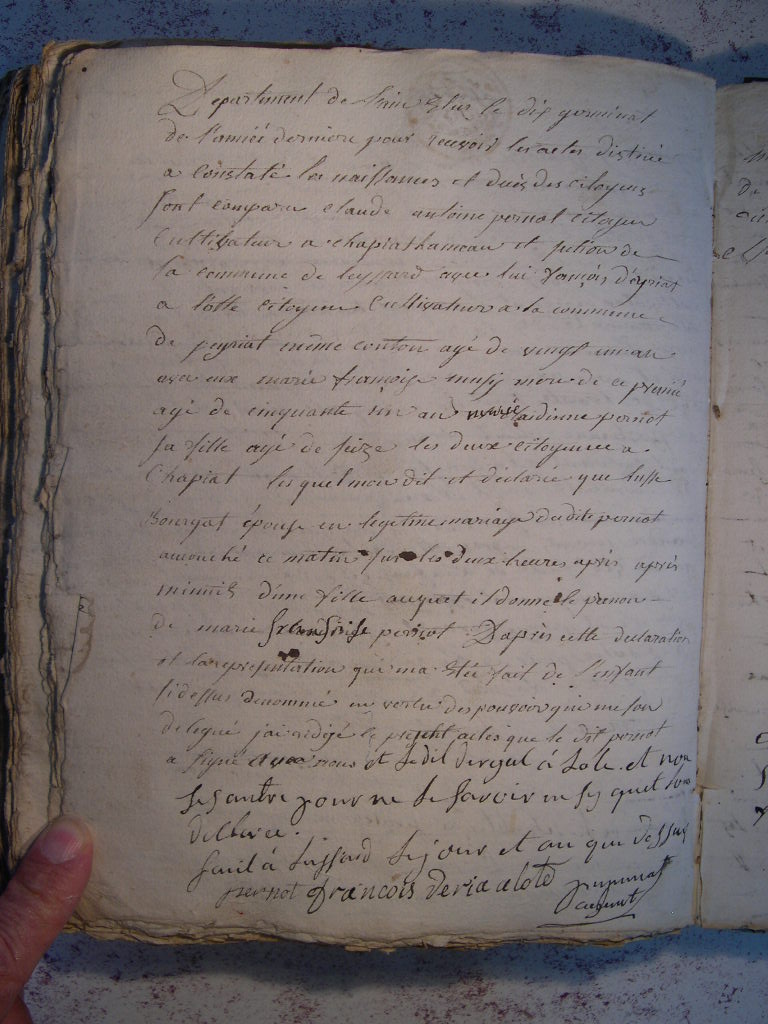 Departement de l'ain Élus le dix germinal
de l'année derniere pour recevoir les actes distiné
a constaté les naissances et deces des citoyens
sont comparu claude antoine pernot citoyen
Cultivateur a chapiat hameau et section de
la commune de leyssard avec lui françois d'éyriat
a lotte citoyen Cultivateur a la commune
De peyriat même conton agé de vingt un an
avec eux marie françoise musy mere de ce premié
agé de cinquante six an marie claudinne pernot
sa fille agé de seize les deux citoyenne a
Chapiat les quel mon dit et déclaré que
Bourgat épouse en legetime mariage dudit pernot
accouché ce matin sur les deux heures après après
minuit d'une fille auquel il donne le prenon
de marie françoise pernot D'après cette declaration
et la representation qui ma Été fait de l'enfant
si dessus denommé en vertu des pouvoir qui me son
delegué jai redigé le present actes que le dit pernot
a signé avec nous et ledit deryat à Lote et non
les autre pour ne le savoir en ſy quet
dellaree.
fait à Leyssard le jour et an que dessus
pernot françois deriaalote